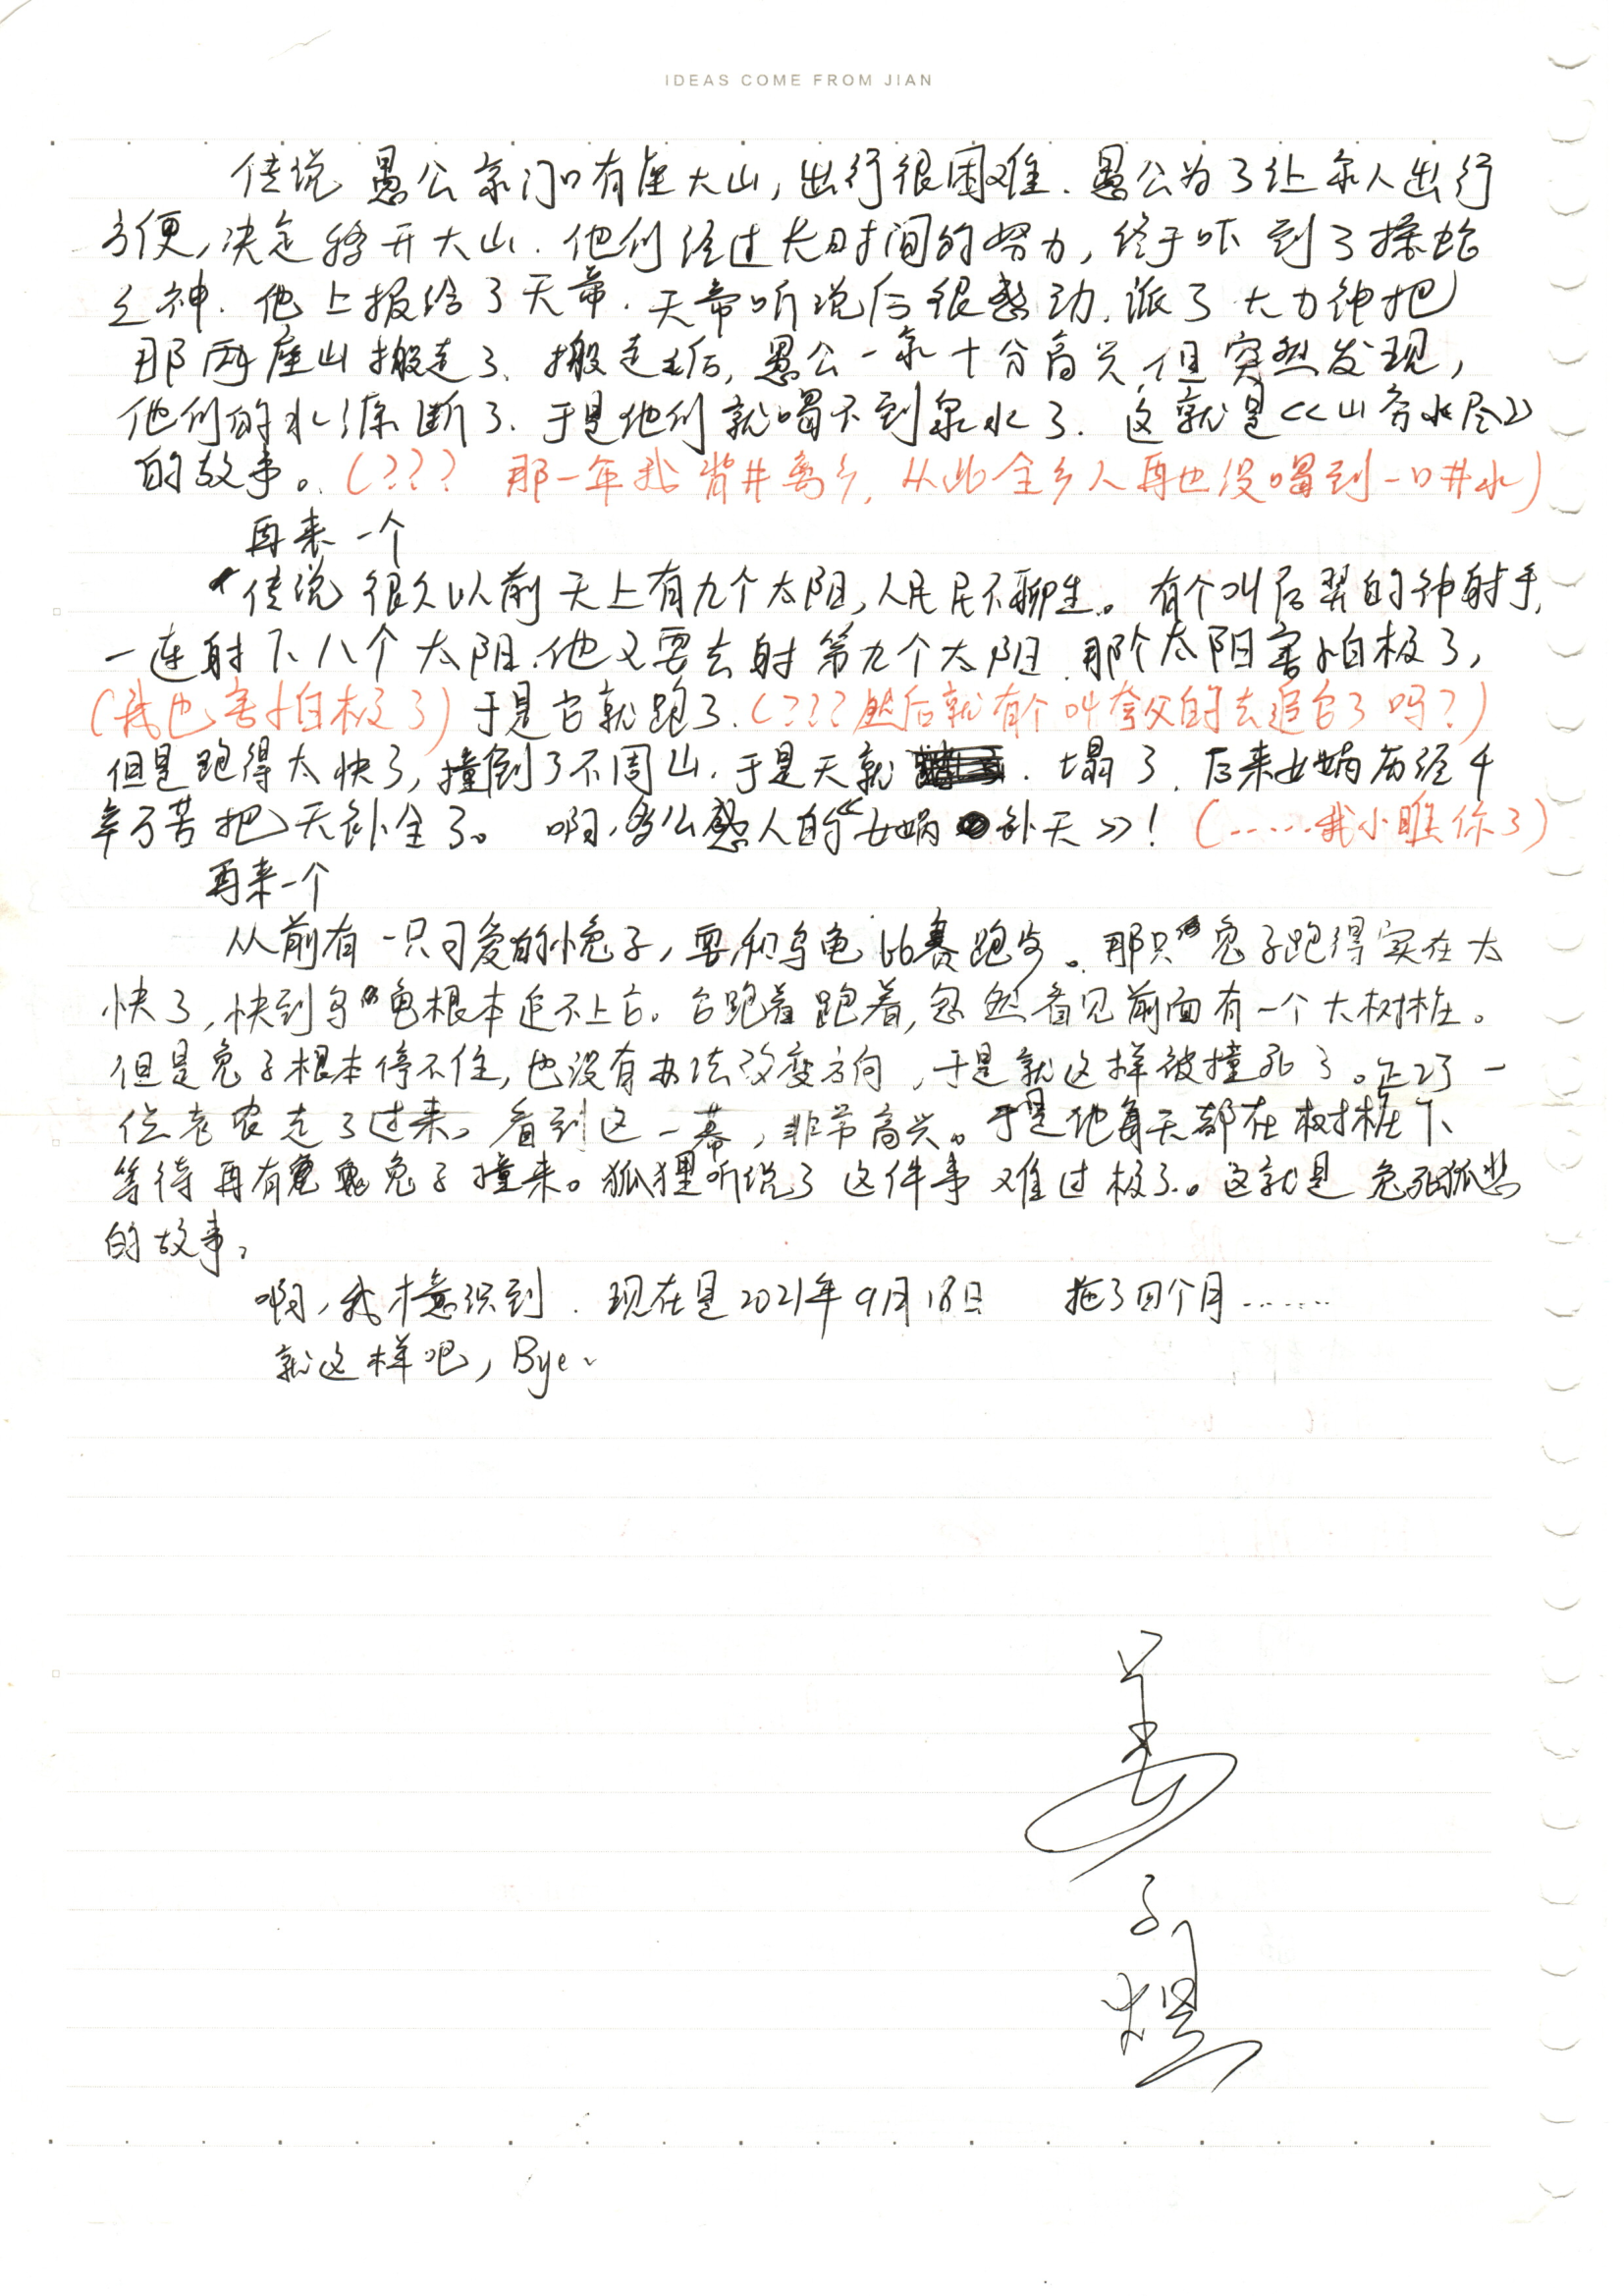 IDEAS COME FROM JIAN
传说愚公家门口有座大山，出行很困难.愚公为了让家人出行
方便，决定移开大山.他们经过长时间的努力，终于吓到了操蛇
之神.他上报给了天帝.天帝听说后很感动.派了大力神把
那两座山搬走了.搬走后，愚公一家十分高兴,但突然发现，
他们的水源断了.于是他们就喝不到泉水了.这就是《山穷水尽》
的故事。(??? 那一年我背井离乡,从此全乡人再也没喝到一口井水)
再来一个
传说很久以前天上有九个太阳,人民民不聊生。有个叫后羿的神射手,
一连射下八个太阳.他又要去射第九个太阳.那个太阳害怕极了,
(我也害怕极了)于是它就跑了.(???然后就有个叫夸父的去追它了吗?)
但是跑得太快了,撞倒了不周山.于是天就塌了.后来女娲历经千
辛万苦把天补全了。啊,多么感人的《女娲补天》!(......我小瞧你了)
再来一个
从前有一只可爱的小兔子,要和乌龟比赛跑步。那只兔子跑得实在太
快了,快到乌龟根本追不上它。它跑着跑着,忽然看见前面有一个大树桩。
但是兔子根本停不住,也没有办法改变方向,于是就这样被撞死了。正巧一
位老农走了过来。看到这一幕,非常高兴。于是他每天都在树桩下
等待再有兔子撞来。狐狸听说了这件事难过极了。这就是兔死狐悲
的故事。
啊,我才意识到.现在是2021年9月18日 拖了四个月......
就这样吧,Bye~
姜
子
煜